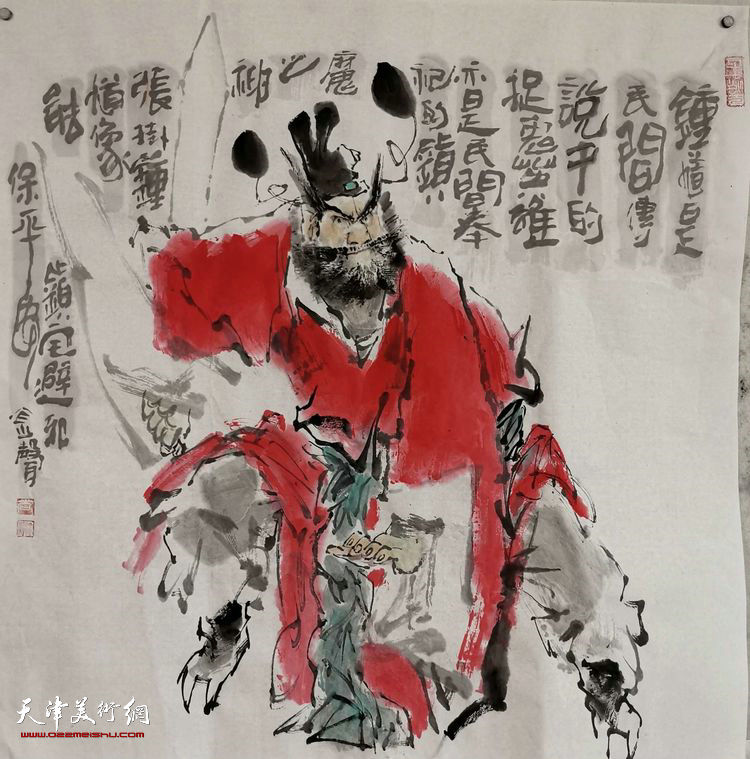 鍾馗是
民間傳
說中的
捉鬼英雄
亦是民間奉
祀的鎮
魔
之
神
張掛鍾
馗像
能
鎮宅避邪
保平安
金聲
天津美術網
www.022meishu.com